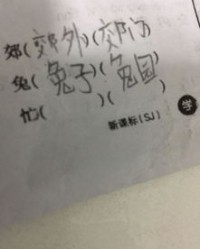 郊(郊外)(郊门)
兔(兔子)(兔园)
忙(  )(  )
新课标(SJ) 学